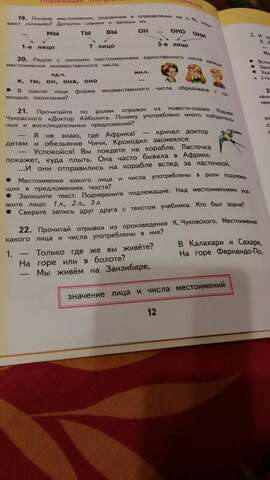 19. Почему местоимения, указанные в определении на с.
зывают личными? Дополни схемы и запиши их.
— МЫ ТЫ ВЫ ОН — ОНО ОНИ
1-е лицо ? лицо 3-е лицо
20. Рядом с личными местоимениями единственного числа
местоимения множественного числа.
ед.ч. мн.ч.
я, ты, он, она, оно
В каком лице форма множественного числа образована с по-
мощью окончания?
21. Прочитайте по ролям отрывок из повести-сказки Корнея
Чуковского «Доктор Айболит». Почему употреблено много побудитель-
ных и восклицательных предложений?
— Я не знаю, где Африка! — кричал доктор
детям и обезьяне Чичи. Крокодил засмеялся:
— Успокойся! Вы поедете на корабле. Ласточка
покажет, куда плыть. Она часто бывала в Африке.
...И они отправились на корабле вслед за ласточкой.
Местоимения какого лица и числа употреблены в роли подлежа-
щих в предложениях текста?
Запишите текст. Подчеркните подлежащие. Над местоимениями ука-
жите лицо: 1 л., 2 л., 3 л.
Сверьте запись друг друга с текстом учебника. Кто был зорче?
22. Прочитай отрывки из произведения К. Чуковского. Местоимения
какого лица и числа употреблены в них?
1. — Только где же вы живёте? В Калахари и Сахаре,
На горе или в болоте? На горе Фернандо-По,
— Мы живём на Занзибаре,
значение лица и числа местоимений
12